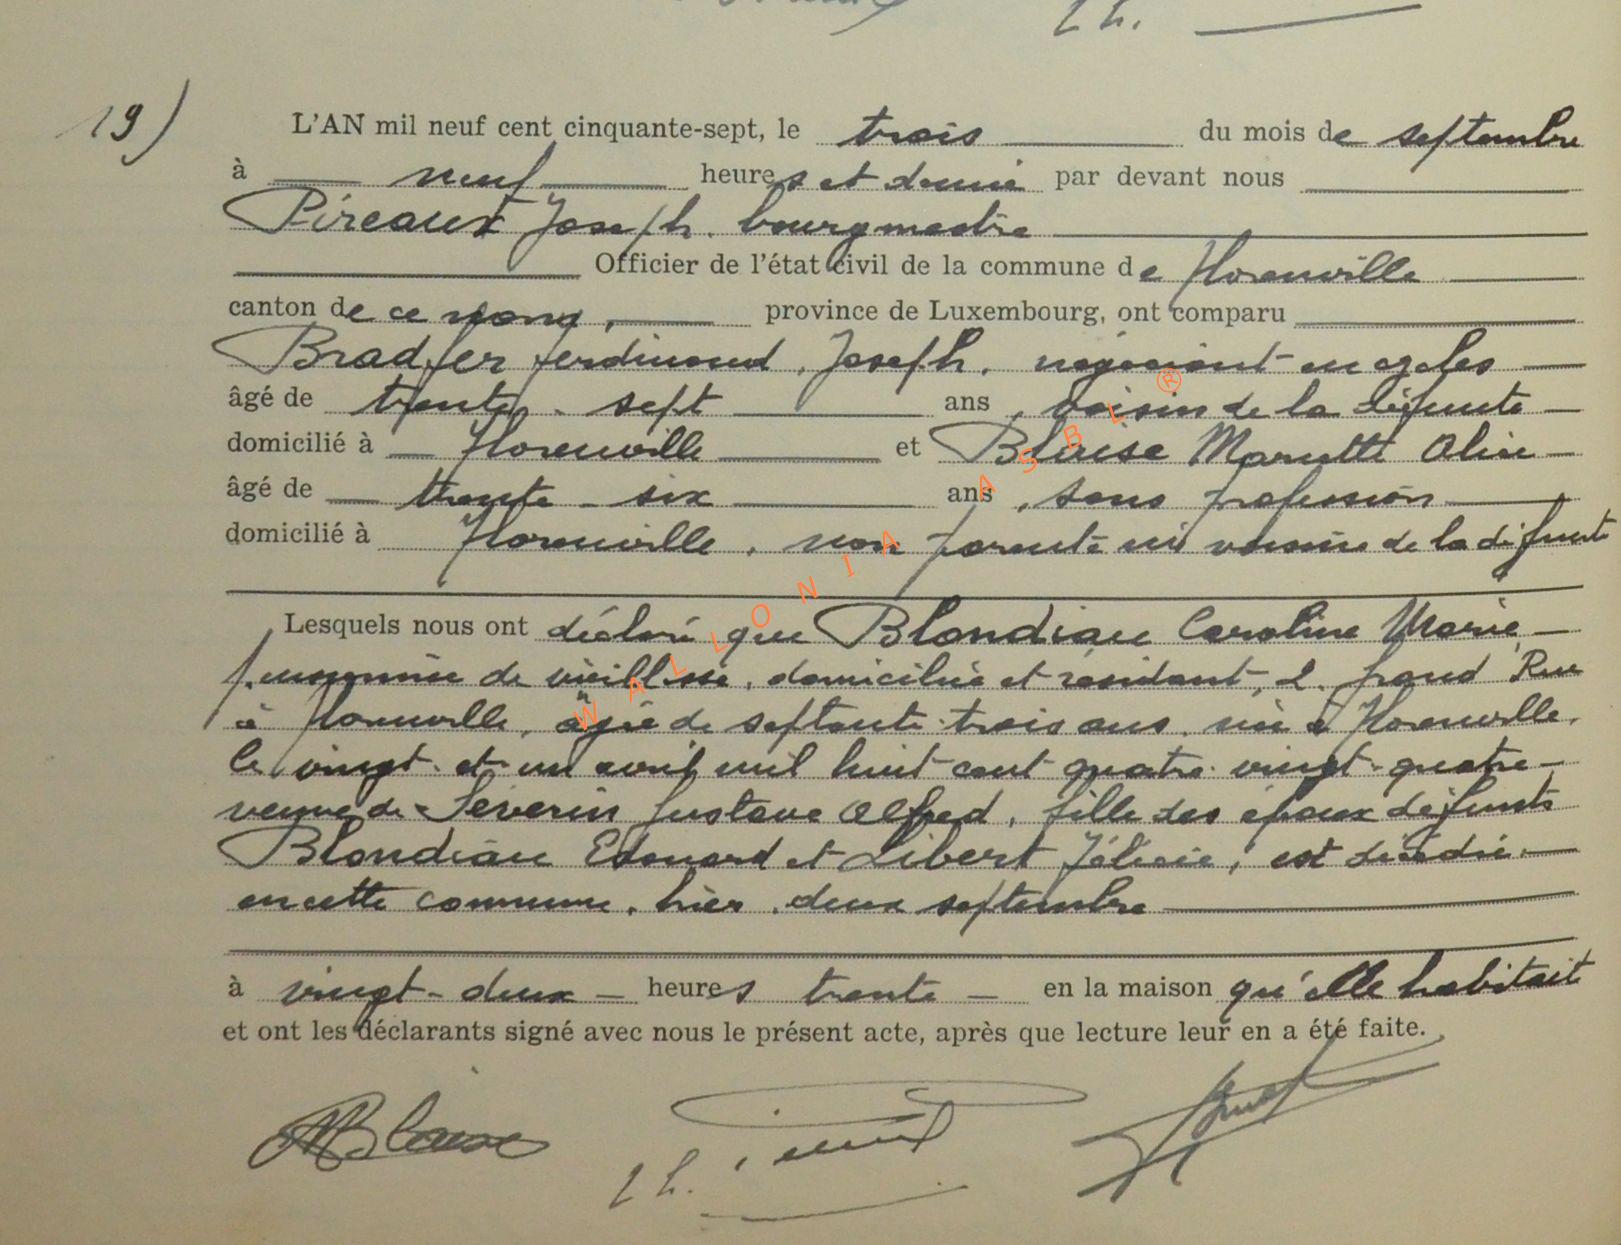 19)
L'AN mil neuf cent cinquante-sept, le trois du mois de septembre
à neuf heures et demie par devant nous
Pireaux Joseph, bourgmestre
Officier de l'état civil de la commune de Florenville
canton de ce nom, province de Luxembourg, ont comparu
Bradfer Ferdinand, Joseph, négociant en
âgé de trente-sept ans, voisin de la défunte
domicilié à Florenville et Blaise Mariette Aline
âgé de trente-six ans, sans profession
domicilié à Florenville, non parente ni voisine de la défunte
Lesquels nous ont déclaré que Blondiau Caroline Marie,
pensionnée de vieillesse, domiciliée et résidant, 2, Grand Rue
à Florenville, âgée de septante-trois ans, née à Florenville,
le vingt-et-un avril mil huit cent quatre-vingt-quatre
veuve de Séverin Gustave Alfred, fille des époux défunts
Blondiau Edouard et Libert Félicie, est décédée
en cette commune, hier, deux septembre
à vingt-deux heures trente en la maison qu'elle habitait
et ont les déclarants signé avec nous le présent acte, après que lecture leur en a été faite.
MBlaise
WALLONIA ASBL ®